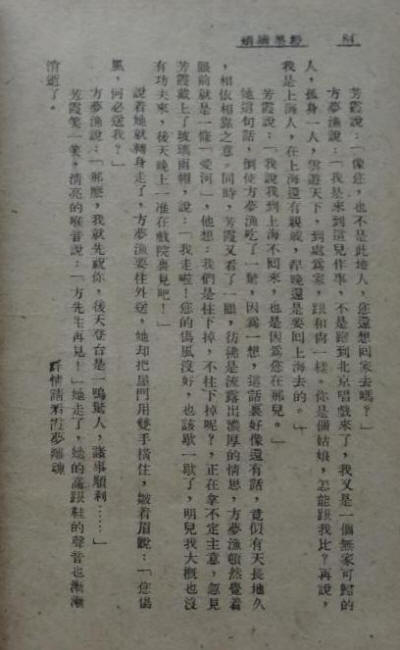 84
芳霞說:「像您,也不是此地人,您還想回家去嗎?」
方夢漁說:「我是來到這兒作事,不是跑到北京唱戲來了,我又是一個無家可歸的
人,孤身一人,雲遊天下,到處爲家,跟和尚一樣。你是個姑娘,怎能跟我比?再說,
我是上海人,在上海還有親戚,早晚還是要回上海去的。」
芳霞說:「我說我到上海不回來,也是因爲您在那兒。」
她這句話,倒使方夢漁吃了一驚,因爲一想,這話裏好像還有話,竟似有天長地久
,相依相靠之意。同時,芳霞又看了一眼,彷彿是流露出濃厚的情思,方夢漁頓然覺着
眼前就是一條「愛河」,他想:我們是往下掉,不往下掉呢?,正在拿不定主意,忽見
芳霞戴上了玻璃雨帽,說:「我走啦!您的傷風沒好,也該歇一歇了,明兒我大概也沒
有功夫來,後天晚上一准在戲院裏見吧!」
說着她就轉身走了,方夢漁要往外送,她却把屋門用雙手橫住,皺着眉說:「您傷
風,何必送我?」
方夢漁說:「那麼,我就先祝你,後天登台是一鳴驚人,諸事順利……」
芳霞笑一笑,清亮的喉音說:「方先生再見!」她走了,她的高跟鞋的聲音也漸漸
消逝了。
詳情請看霞夢離魂